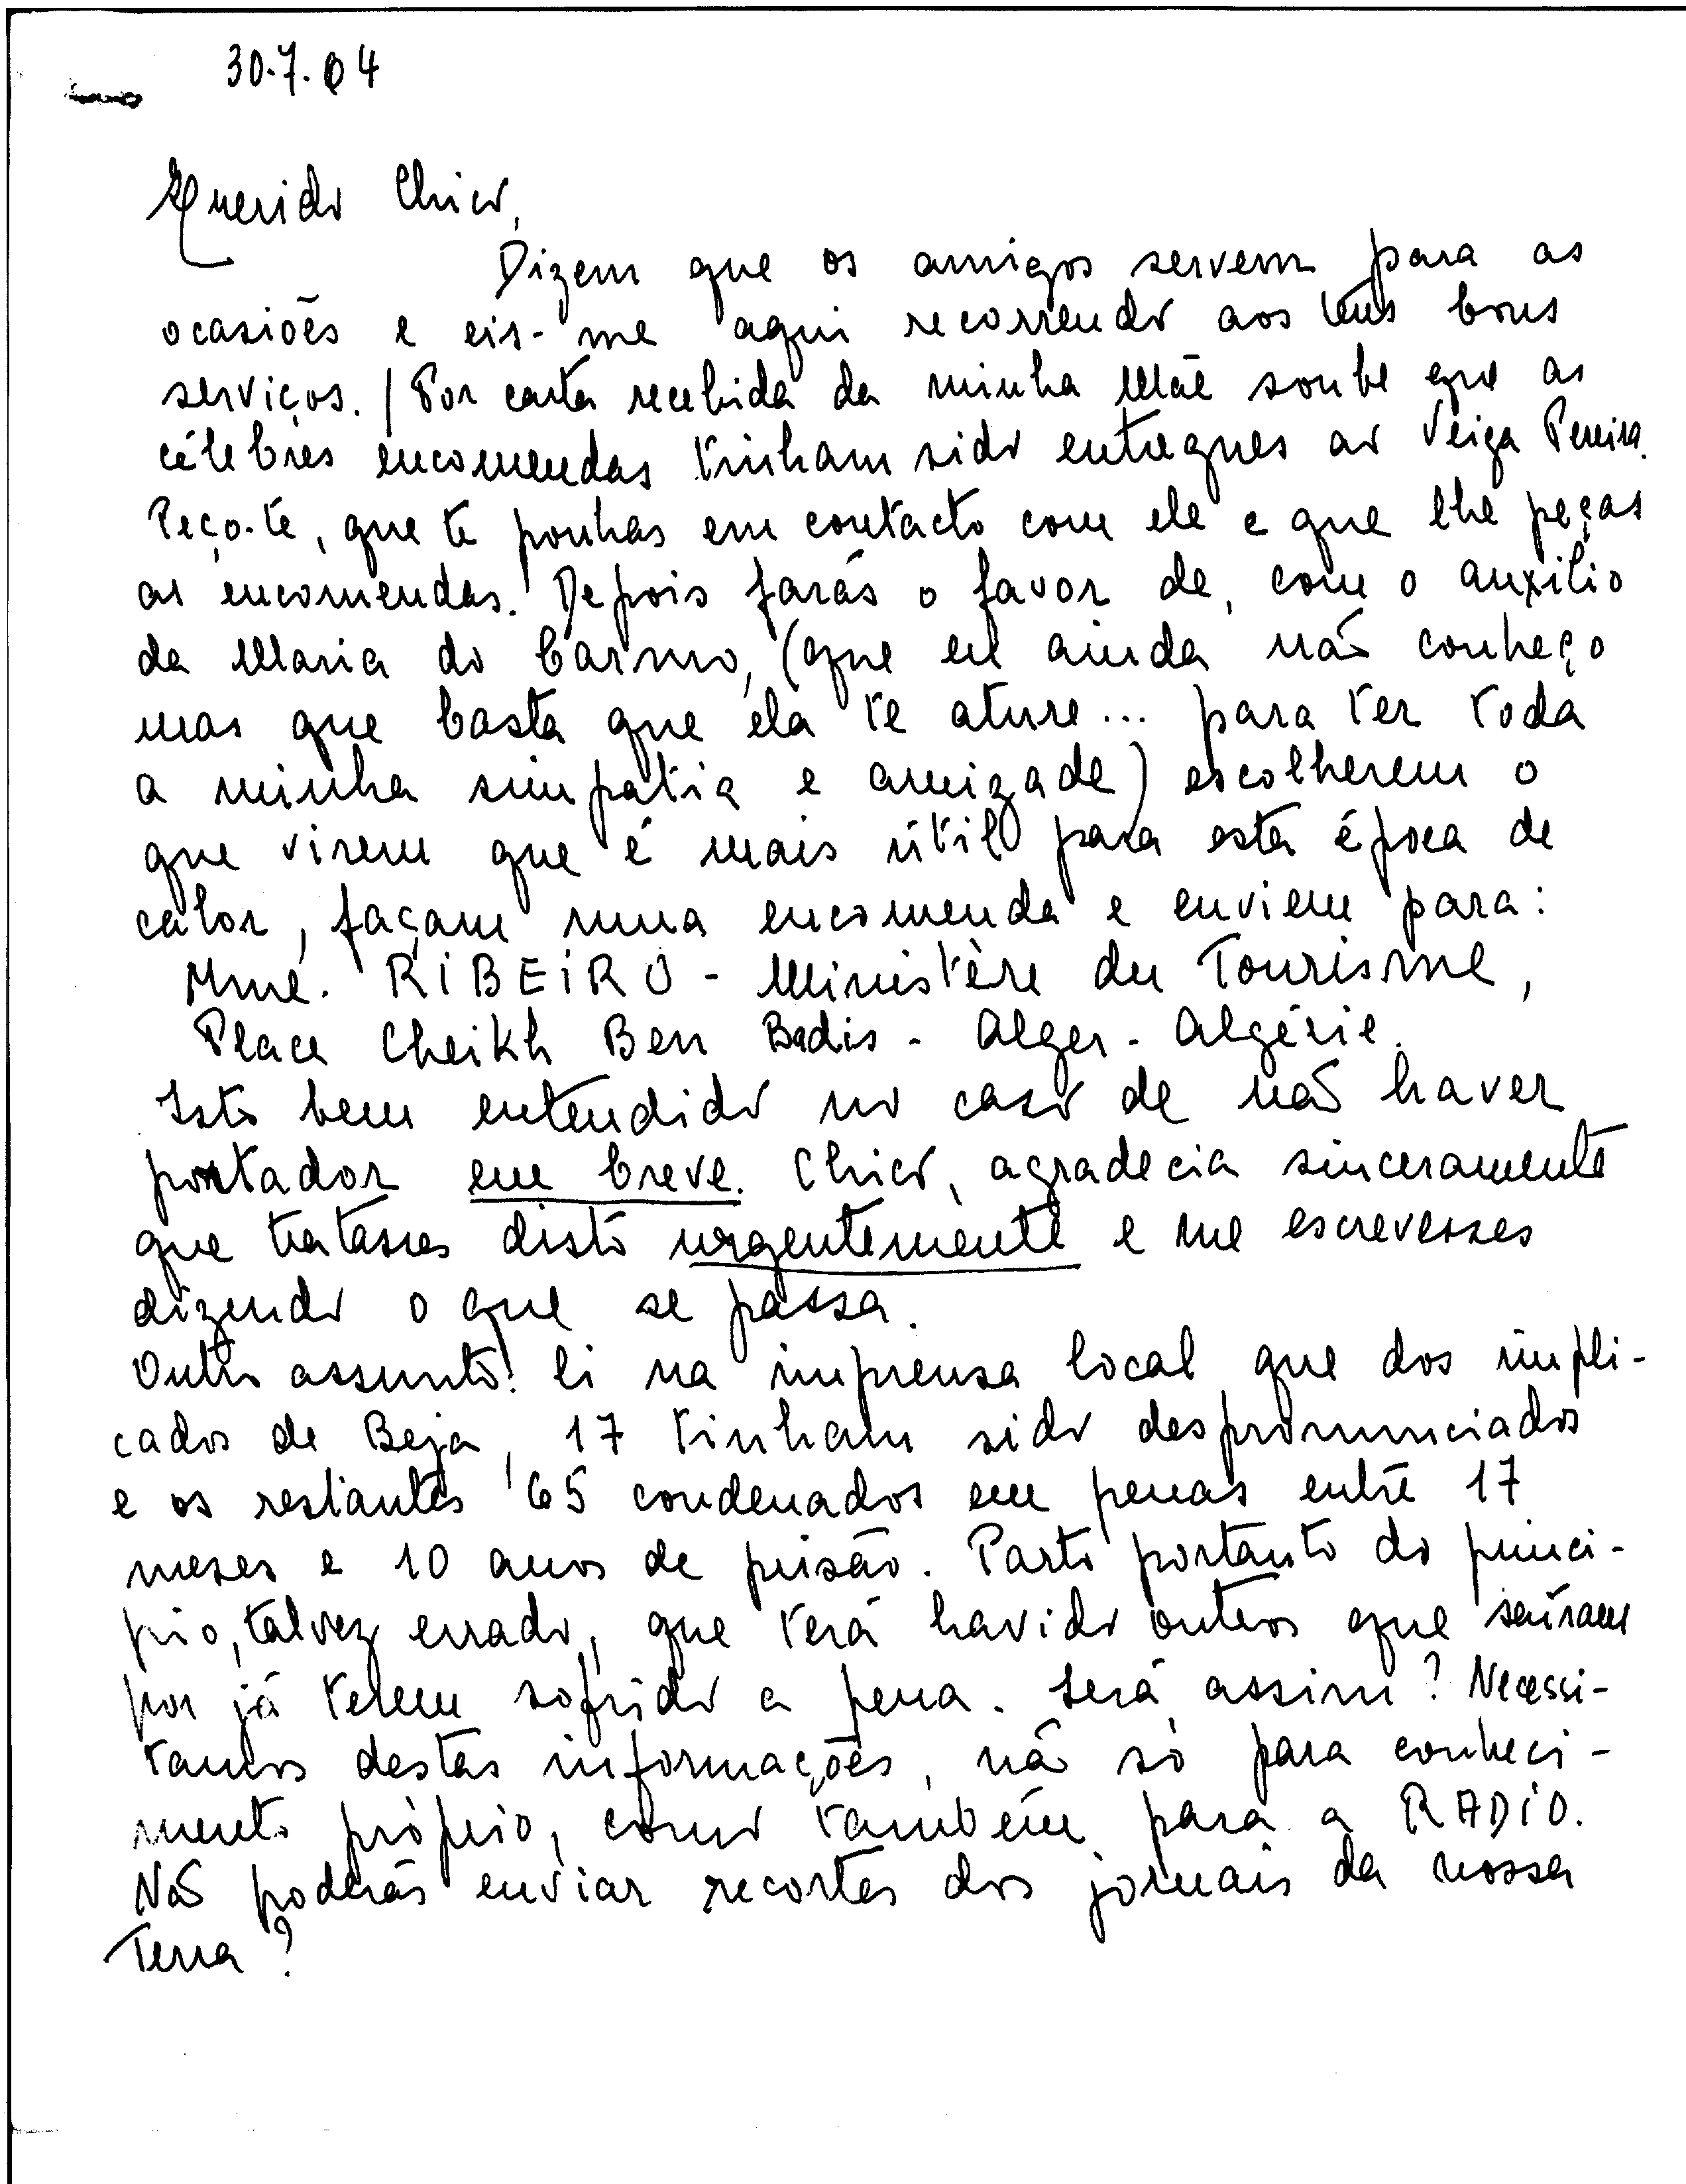 30.7.64
Querido Chico,
Dizem que os amigos servem para as
ocasiões e eis-me aqui recorrendo aos teus bons
serviços. / Por carta recebida da minha Mãe soube que as
célebres encomendas tinham sido entregues ao Veiga Pereira.
Peço-te, que te ponhas em contacto com ele e que lhe peças
as encomendas. Depois farás o favor de, com o auxílio
da Maria do Carmo, (que eu ainda não conheço
mas que basta que ela te ature... para ter toda
a minha simpatia e amizade) escolherem o
que virem que é mais útil para esta época de
calor, façam uma encomenda e enviem para:
Mme. RIBEIRO - Ministère du Tourisme,
Place Cheikh Ben Badis - Alger - Algérie.
Isto bem entendido no caso de não haver
portador em breve. Chico, agradecia sinceramente
que tratasses disto urgentemente e me escrevesses
dizendo o que se passa.
Outro assunto: li na imprensa local que dos impli-
cados de Beja, 17 tinham sido despronunciados
e os restantes 65 condenados em penas entre 17
meses e 10 anos de prisão. Parto portanto do princi-
pio, talvez errado, que terá havido outros que saíram
por já terem sofrido a pena. Será assim? Necessi-
tamos destas informações, não só para conheci-
mento próprio, como também para a RADIO.
Não poderás enviar recortes dos jornais da nossa
Terra?